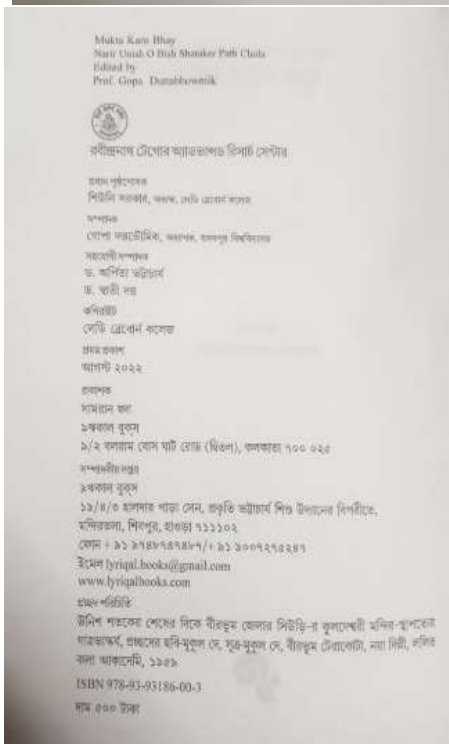 Mukta Karo Bhay
Narir Unish O Bish Shataker Path Chola
Edited by
Prof. Gopa Duttabhowmik
রবীন্দ্রনাথ টেগোর অ্যাডভান্সড রিসার্চ সেন্টার
প্রধান পৃষ্ঠপোষক
শিউলি সরকার, অধ্যক্ষ, লেডি ব্রেবোর্ন কলেজ
সম্পাদক
গোপা দত্তভৌমিক, অধ্যাপক,
সহযোগী সম্পাদক
ড. অর্পিতা ভট্টাচার্য
ড. স্বাতী দত্ত
কপিরাইট
লেডি ব্রেবোর্ন কলেজ
প্রথম প্রকাশ
আগস্ট ২০২২
প্রকাশক
সামরান হুদা
৯ঋকাল বুকস
৯/২ বলরাম বোস ঘাট রোড (দ্বিতল), কলকাতা ৭০০ ০২৫
সম্পাদকীয় দপ্তর
৯ঋকাল বুকস
১৯/৪/৩ হালদার পাড়া লেন, প্রকৃতি ভট্টাচার্য শিশু উদ্যানের বিপরীতে,
মন্দিরতলা, শিবপুর, হাওড়া ৭১১১০২
ফোন + ৯১ ৯৭৪৮৭৪৭৪৮৭/+ ৯১ ৯০০৭২৭৫২৪৭
ইমেল lyriqal.books@gmail.com
www.lyriqalbooks.com
প্রচ্ছদ পরিচিতি
উনিশ শতকের শেষের দিকে বীরভূম জেলার সিউড়ি-র কুলদেশ্বরী মন্দির-স্থাপত্যের
গাত্রভাস্কর্য, প্রচ্ছদের ছবি-মুকুল দে, সূত্র-মুকুল দে, বীরভূম টেরাকোটা, নয়া দিল্লী, ললিত
কলা আকাদেমি, ১৯৫৯
ISBN 978-93-93186-00-3
দাম ৫০০ টাকা